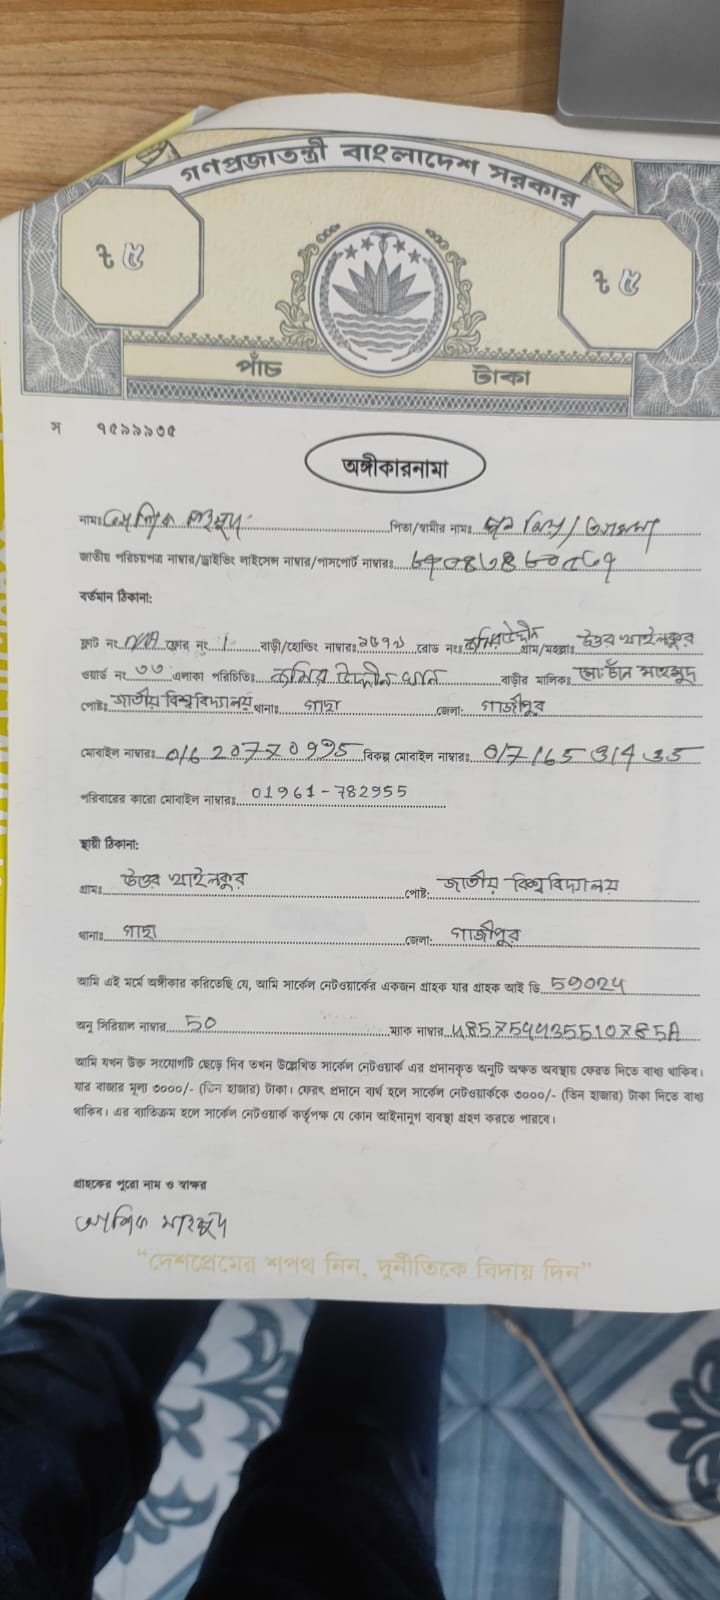 গণপ্রজাতন্ত্রী বাংলাদেশ সরকার
৳ ৫ ৳ ৫
পাঁচ টাকা
স ৭৫৯৯৯৩৫
অঙ্গীকারনামা
নামঃ আশিক মাহমুদ পিতা/স্বামীর নামঃ
জাতীয় পরিচয়পত্র নাম্বার/ড্রাইভিং লাইসেন্স নাম্বার/পাসপোর্ট নাম্বারঃ
বর্তমান ঠিকানা:
ফ্লাট নং N/A ফ্লোর নং 1 বাড়ী/হোল্ডিং নাম্বারঃ রোড নংঃ গ্রাম/মহল্লাঃ উত্তর খাইলকুর
ওয়ার্ড নং ৩৩ এলাকা পরিচিতিঃ বাড়ীর মালিকঃ মোঃ চাঁন মাহমুদ
পোষ্টঃ জাতীয় বিশ্ববিদ্যালয় থানাঃ গাছা জেলা: গাজীপুর
মোবাইল নাম্বারঃ বিকল্প মোবাইল নাম্বারঃ
পরিবারের কারো মোবাইল নাম্বারঃ 01961-782955
স্থায়ী ঠিকানা:
গ্রামঃ উত্তর খাইলকুর পোষ্ট: জাতীয় বিশ্ববিদ্যালয়
থানাঃ গাছা জেলা: গাজীপুর
আমি এই মর্মে অঙ্গীকার করিতেছি যে, আমি সার্কেল নেটওয়ার্কের একজন গ্রাহক যার গ্রাহক আই ডি 59024
অনু সিরিয়াল নাম্বার 50 ম্যাক নাম্বার
আমি যখন উক্ত সংযোগটি ছেড়ে দিব তখন উল্লেখিত সার্কেল নেটওয়ার্ক এর প্রদানকৃত অনুটি অক্ষত অবস্থায় ফেরত দিতে বাধ্য থাকিব।
যার বাজার মূল্য ৩০০০/- (তিন হাজার) টাকা। ফেরৎ প্রদানে ব্যর্থ হলে সার্কেল নেটওয়ার্ককে ৩০০০/- (তিন হাজার) টাকা দিতে বাধ্য
থাকিব। এর ব্যতিক্রম হলে সার্কেল নেটওয়ার্ক কর্তৃপক্ষ যে কোন আইনানুগ ব্যবস্থা গ্রহণ করতে পারবে।
গ্রাহকের পুরো নাম ও স্বাক্ষর
আশিক মাহমুদ
"দেশপ্রেমের শপথ নিন, দুর্নীতিকে বিদায় দিন"